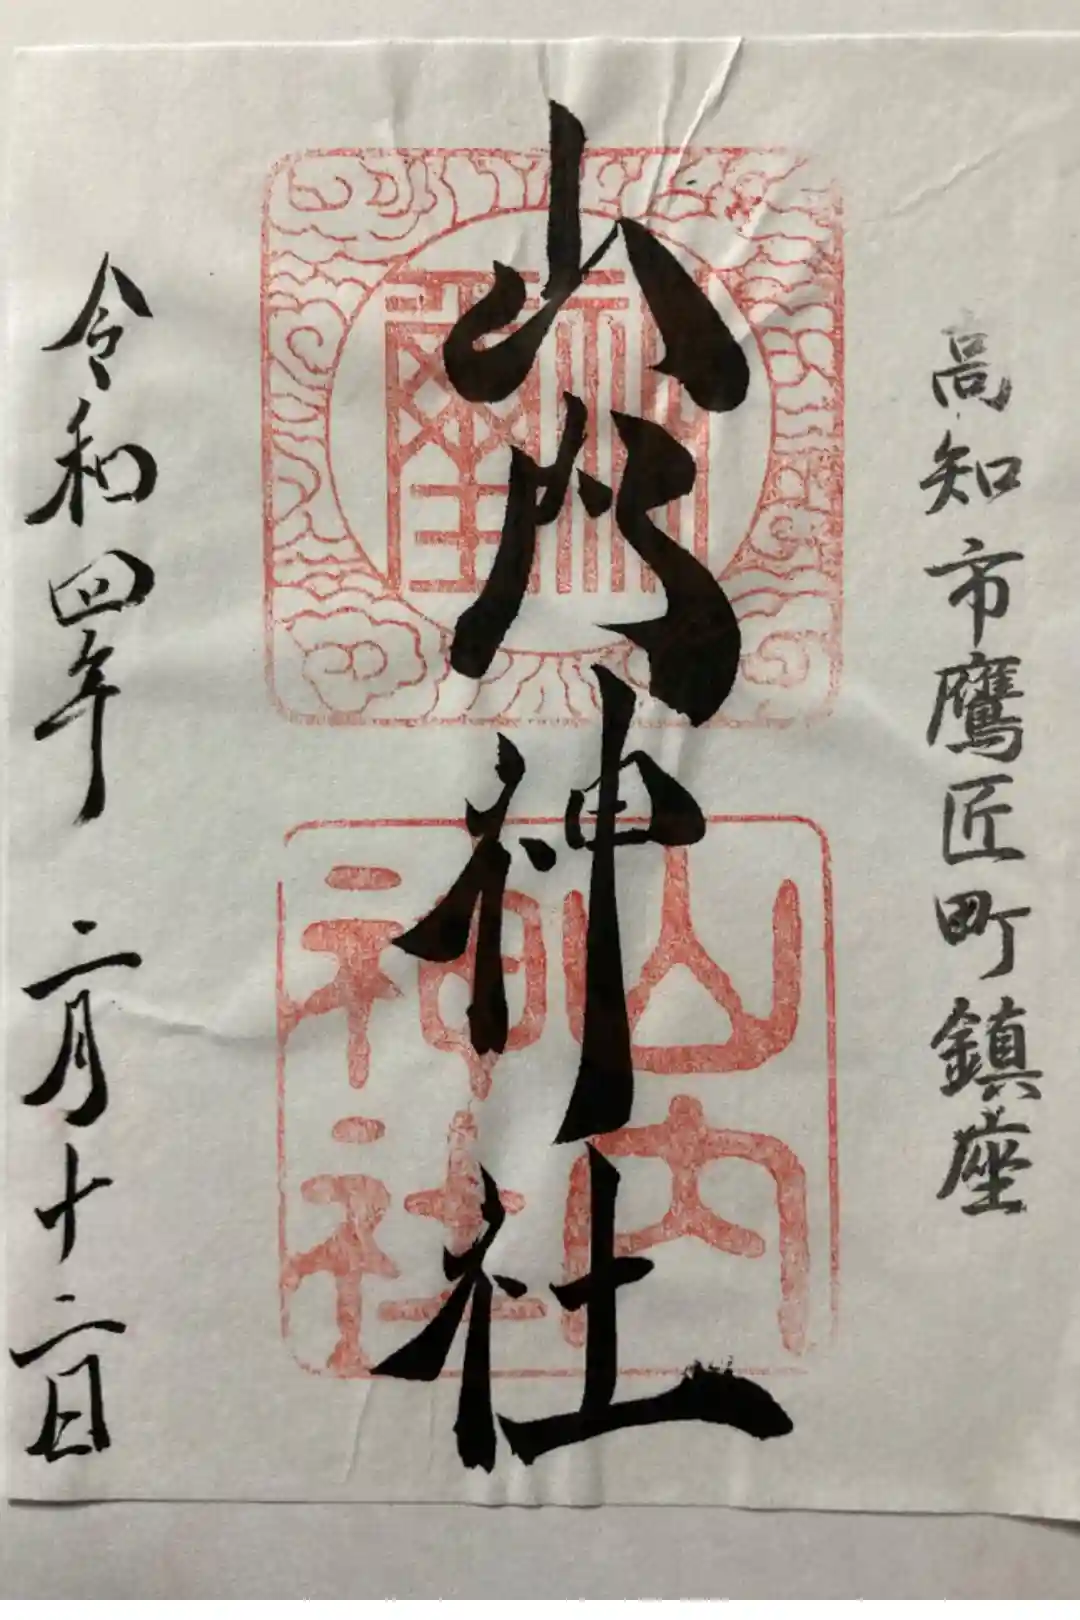 高知市鷹匠町鎮座
山内神社
山内
神社
令和四年 二月十二日